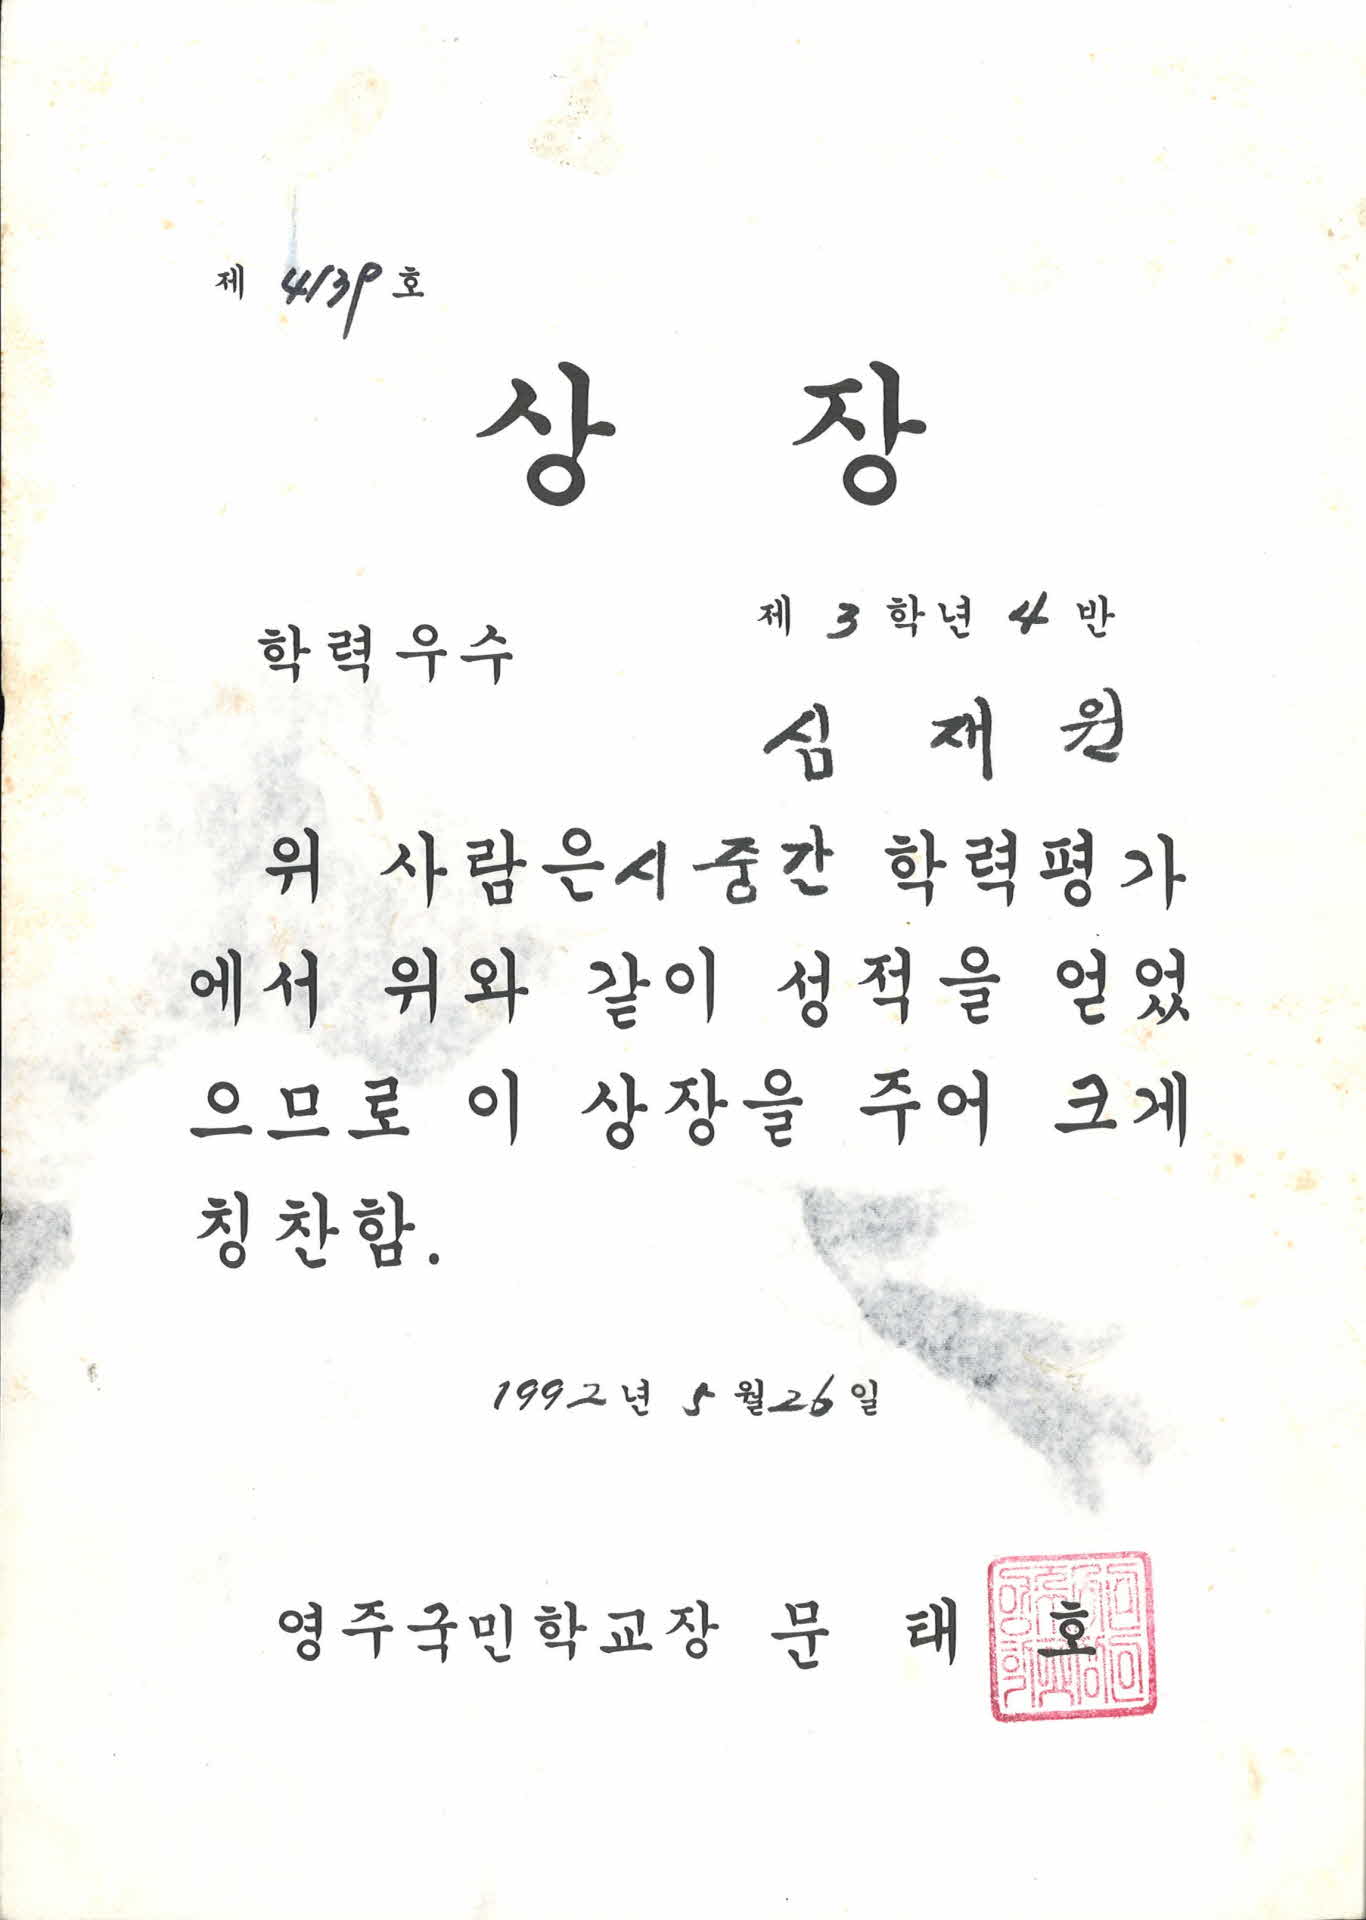 제 4139 호
상 장
학력우수
제 3 학년 4 반
심 재 원
위 사람은 시 중간 학력평가
에서 위와 같이 성적을 얻었
으므로 이 상장을 주어 크게
칭찬함.
1992년 5월 26일
영주국민학교장 문 태 호